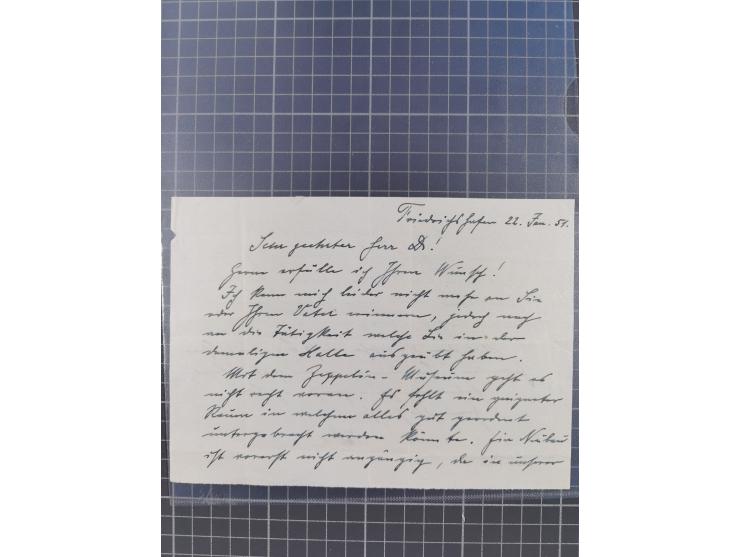 Friedrichshafen 22. Jan. 51.
Sehr geehrter Herr Dr!
Gerne erfülle ich Ihren Wunsch!
Ich kann mich leider nicht mehr an Sie
oder Ihren Vater erinnern, jedoch noch
an die Tätigkeit welche Sie in der
damaligen Halle ausgeübt haben.
Mit dem Zeppelin-Museum geht es
nicht recht voran. Es fehlt ein geeigneter
Raum in welchem alles gut geordnet
untergebracht werden könnte. Ein Neubau
ist vorerst nicht angängig, da in unserer